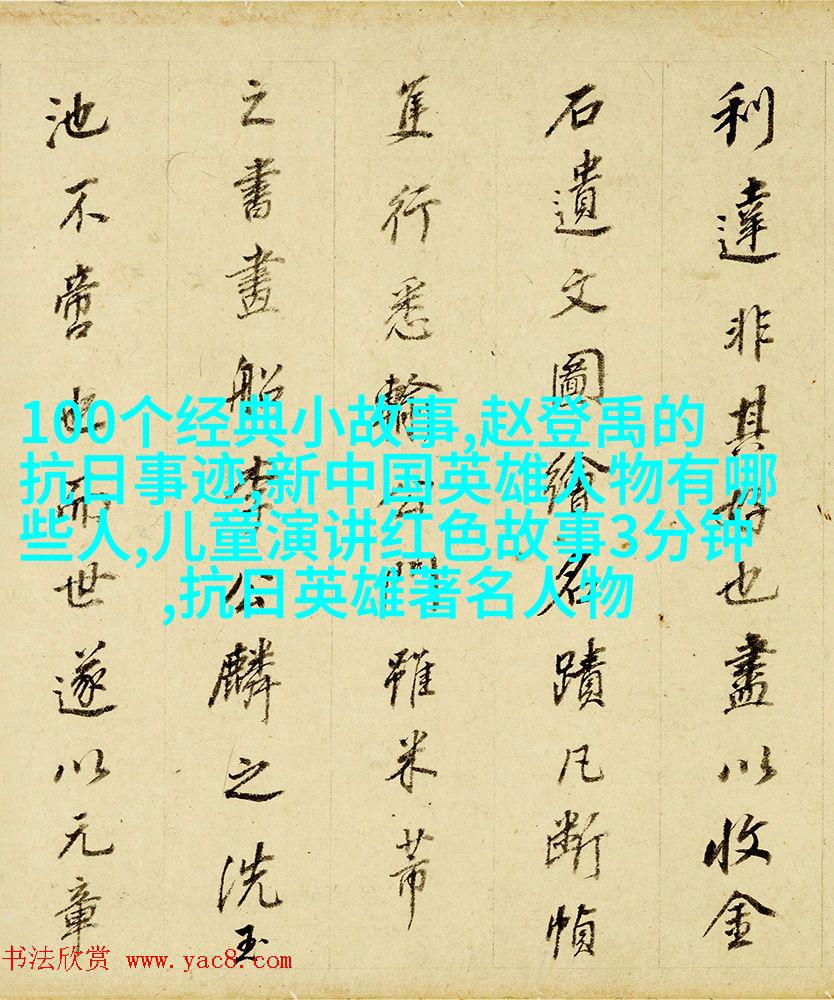 100个经典小故事,赵登禹的
抗日事迹,新中国英雄人物有哪
些人,儿童演讲红色故事3分钟
,抗日英雄著名人物
利達非其好也盡以收金
石遺文圖繪名蹟凡斷幀
隻行悉輸公門雖米芾
之書畫船李公麟之洗玉
池不啻也而世遂以元章
书法欣赏 www.yac8.com